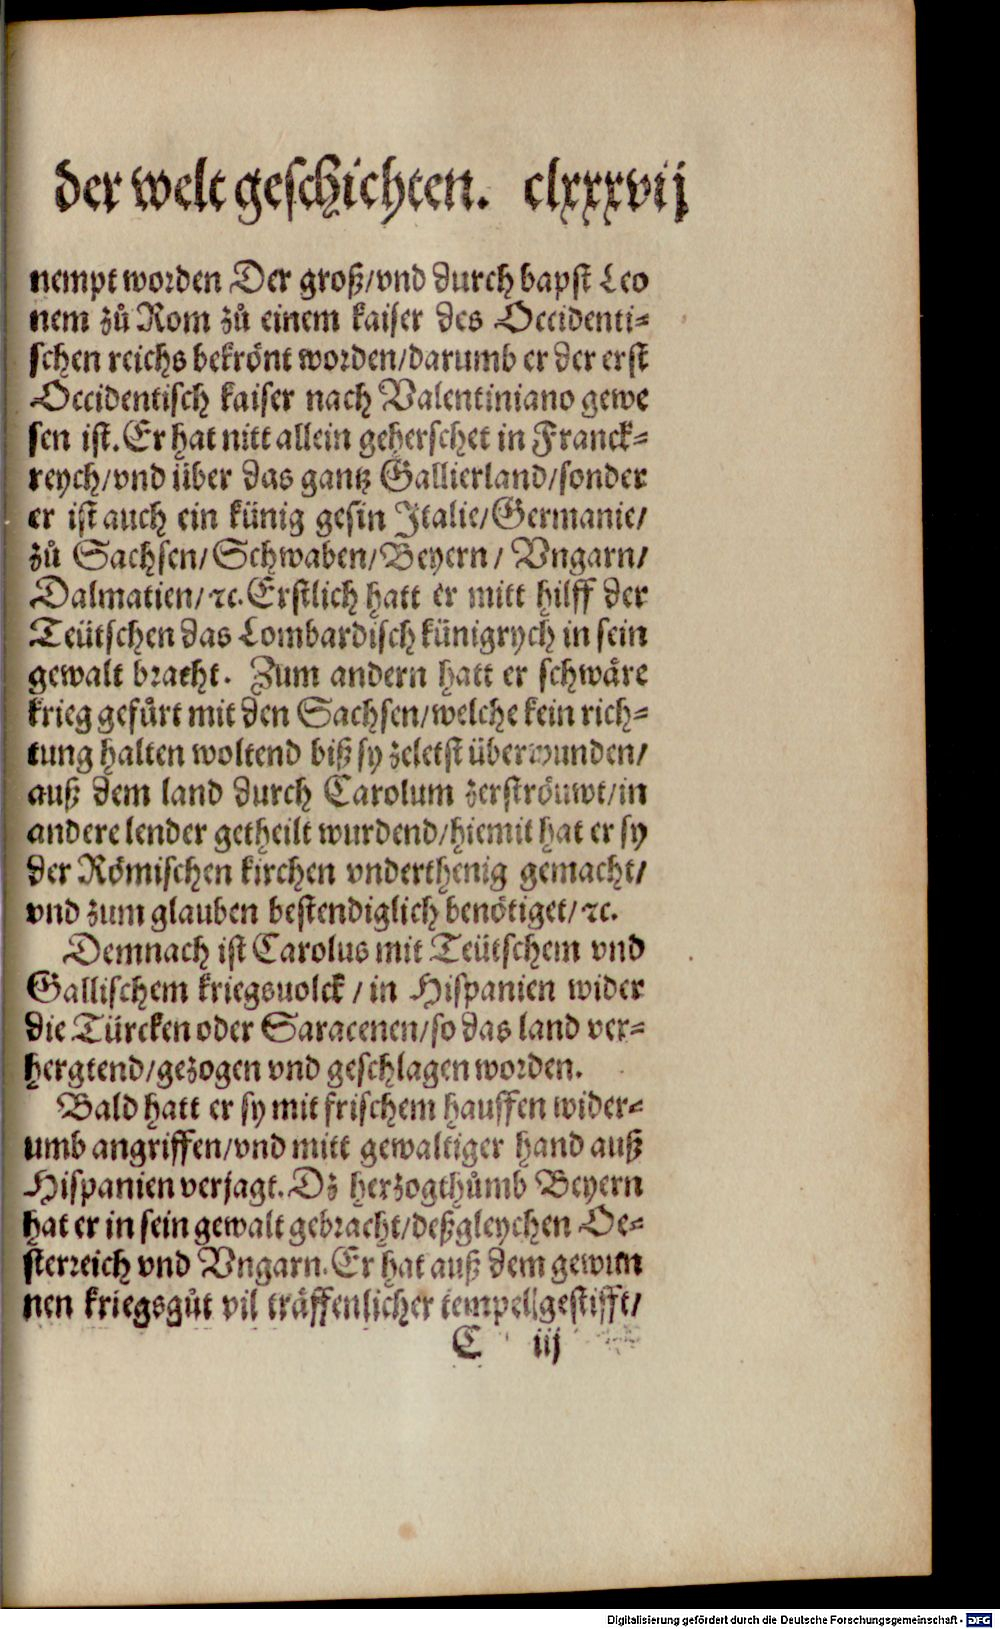 der welt geschichten. clxxxvij
nempt worden Der groß/vnd durch bapst Leo
nem zů Rom zů einem kaiser des Occidenti-
schen reichs bekrönt worden/darumb er der erst
Occidentisch kaiser nach Valentiniano gewe
sen ist. Er hat nitt allein geherschet in Franck-
reych/vnd über das gantz Gallierland/sonder
er ist auch ein künig gesin Italie/Germanie/
zů Sachsen/Schwaben/Beyern/Vngarn/
Dalmatien/ꝛc. Erstlich hatt er mitt hilff der
Teütschen das Lombardisch künigrych in sein
gewalt bracht. Zum andern hatt er schwäre
krieg gefůrt mit den Sachsen/welche kein rich-
tung halten woltend biß sy zeletst überwunden/
auß dem land durch Carolum zerströuwt/in
andere lender getheilt wurdend/hiemit hat er sy
der Römischen kirchen vnderthenig gemacht/
vnd zum glauben bestendiglich benötiget/ꝛc.
Demnach ist Carolus mit Teütschem vnd
Gallischem kriegsuolck/in Hispanien wider
die Türcken oder Saracenen/so das land ver-
hergtend/gezogen vnd geschlagen worden.
Bald hatt er sy mit frischem hauffen wider-
umb angriffen/vnd mitt gewaltiger hand auß
Hispanien verjagt. Dz herzogthůmb Beyern
hat er in sein gewalt gebracht/deßgleychen Oe-
sterreich vnd Vngarn. Er hat auß dem gewun
nen kriegsgůt vil träffenlicher tempell gestifft/
C iij
Digitalisierung gefördert durch die Deutsche Forschungsgemeinschaft - DFG